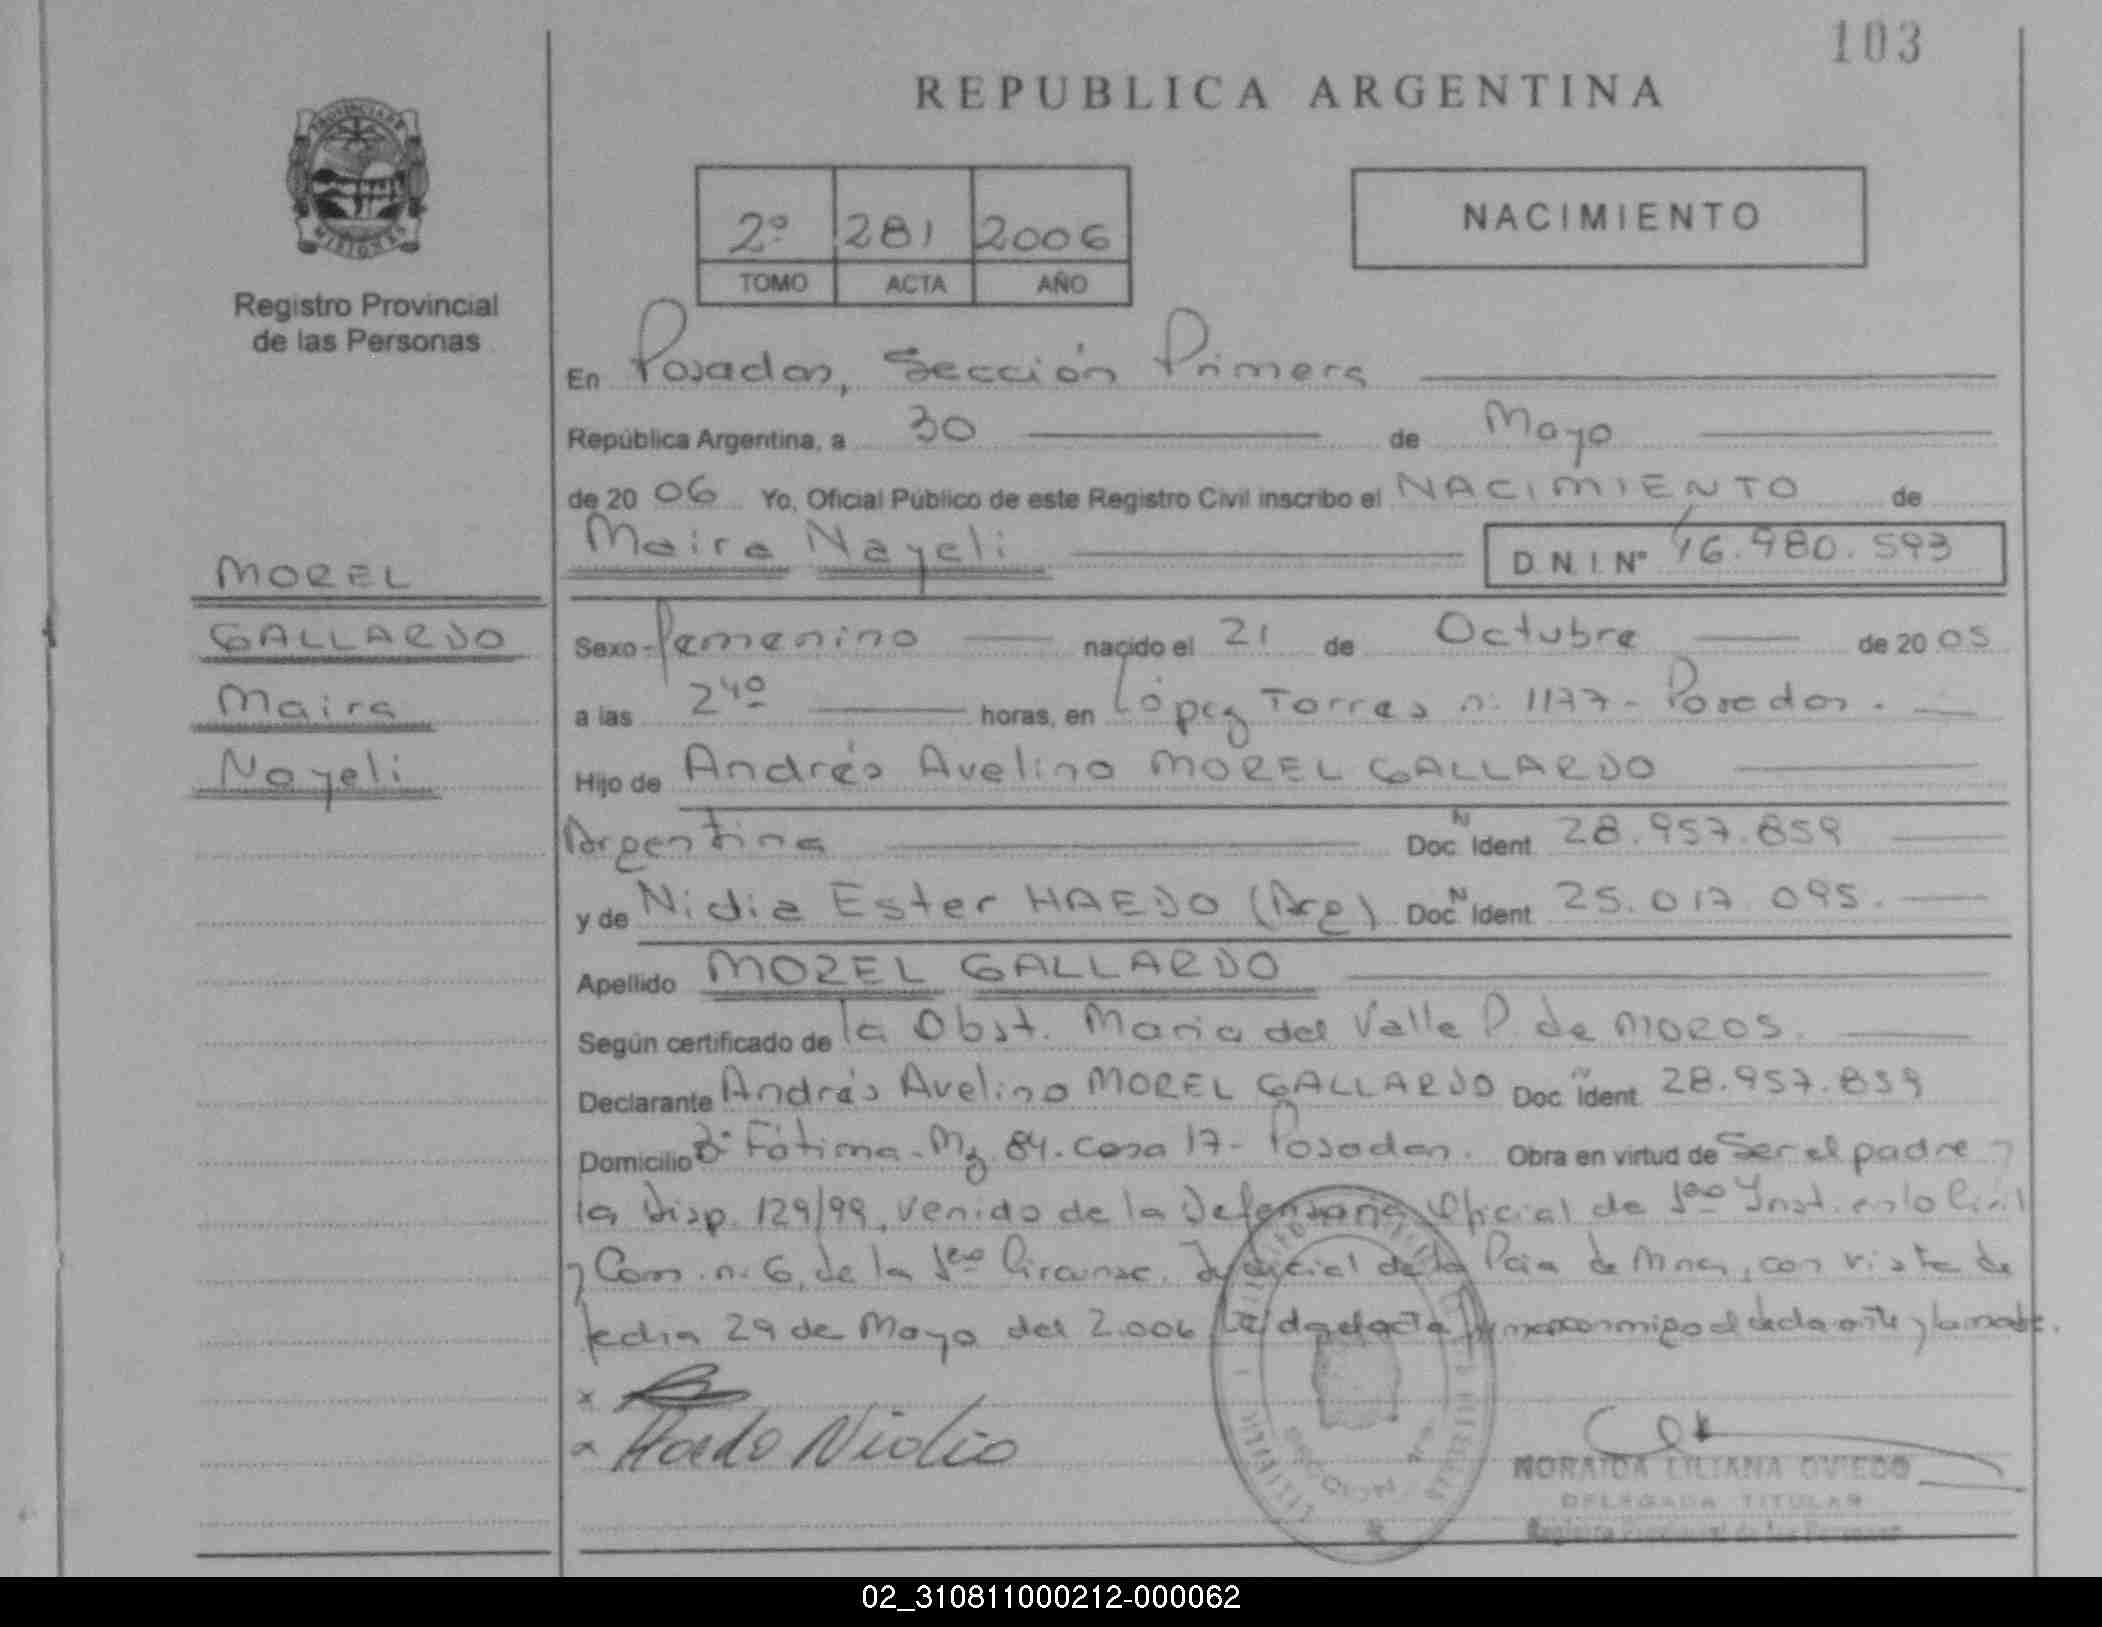 103
REPUBLICA ARGENTINA
PROVINCIA DE
MISIONES
Registro Provincial
de las Personas
2º 281 2006
TOMO ACTA AÑO
NACIMIENTO
En Posadas, Sección Primera
República Argentina, a 30 de Mayo
de 20 06 Yo, Oficial Público de este Registro Civil inscribo el NACIMIENTO de
Maira Nayeli D.N.I.Nº 46.980.593
MOREL
GALLARDO
Maira
Nayeli
Sexo Femenino nacido el 21 de Octubre de 20 05
a las 24º horas, en López Torres n: 1177 - Posadas.
Hijo de Andrés Avelino MOREL GALLARDO
Argentina Doc. N Ident. 28.957.859
y de Nidia Ester HAEDO (Arg) Doc. N Ident. 25.017.095.
Apellido MOREL GALLARDO
Según certificado de la Obst. Maria del Valle P. de MOROS.
Declarante Andrés Avelino MOREL GALLARDO Doc. Ident. 28.957.859
Domicilio Bº Fátima - Mz. 84 - casa 17 - Posadas. Obra en virtud de Ser el padre y
la Disp. 129/99, venido de la Defensoria Oficial de 1era Inst. en lo Civil
y Com. n: 6, de la 1era Circunsc. Judicial de la Pcia de Mnes, con vista de
fecha 29 de Mayo del 2.006 Leida el acta firman conmigo el declarante y la madre.
x
x Haedo Nidia
NORAIDA LILIANA OVIEDO
DELEGADA TITULAR
Registro Provincial de las Personas
02_310811000212-000062